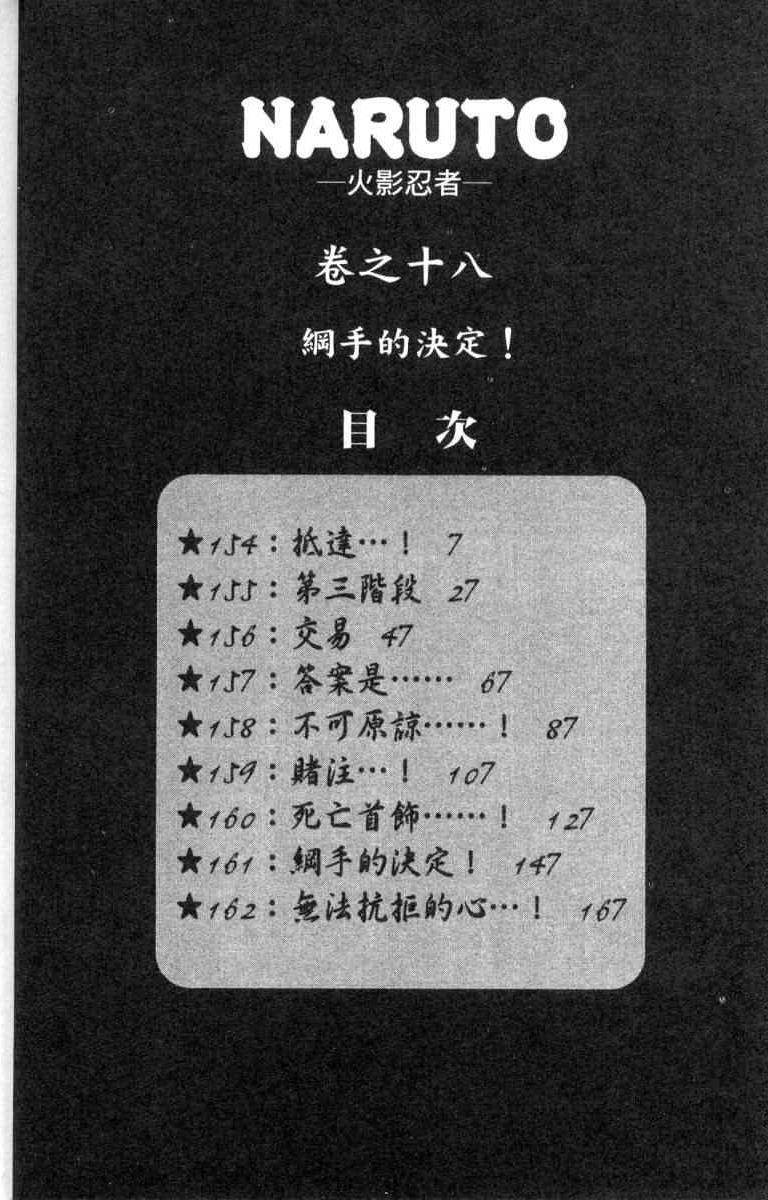 NARUTO
—火影忍者—
卷之十八
綱手的決定！
目 次
★154：抵達…！ 7
★155：第三階段 27
★156：交易 47
★157：答案是…… 67
★158：不可原諒……！ 87
★159：賭注…！ 107
★160：死亡首飾……！ 127
★161：綱手的決定！ 147
★162：無法抗拒的心…！ 167